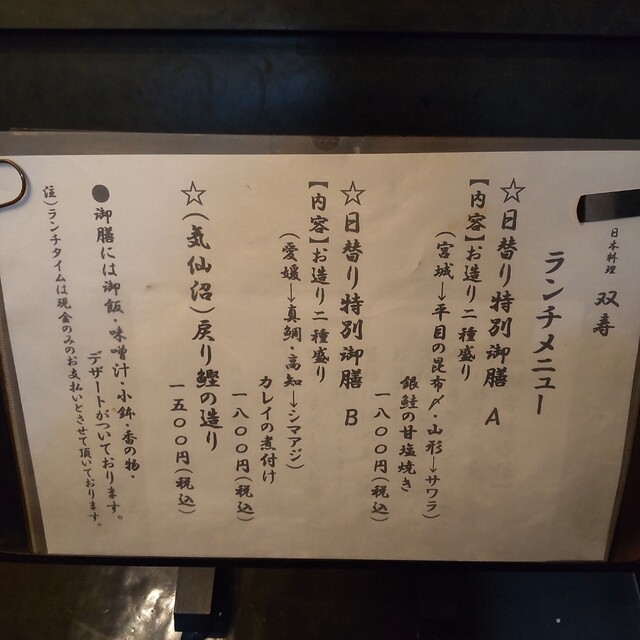 日本料理 双寿
ランチメニュー
☆日替り特別御膳 A
【内容】お造り二種盛り
（宮城→平目の昆布〆・山形→サワラ）
銀鮭の甘塩焼き
一八〇〇円（税込）
☆日替り特別御膳 B
【内容】お造り二種盛り
（愛媛→真鯛・高知→シマアジ）
カレイの煮付け
一八〇〇円（税込）
☆（気仙沼）戻り鰹の造り
一五〇〇円（税込）
●御膳には御飯・味噌汁・小鉢・香の物・
デザートがついております。
注）ランチタイムは現金のみのお支払いとさせて頂いております。